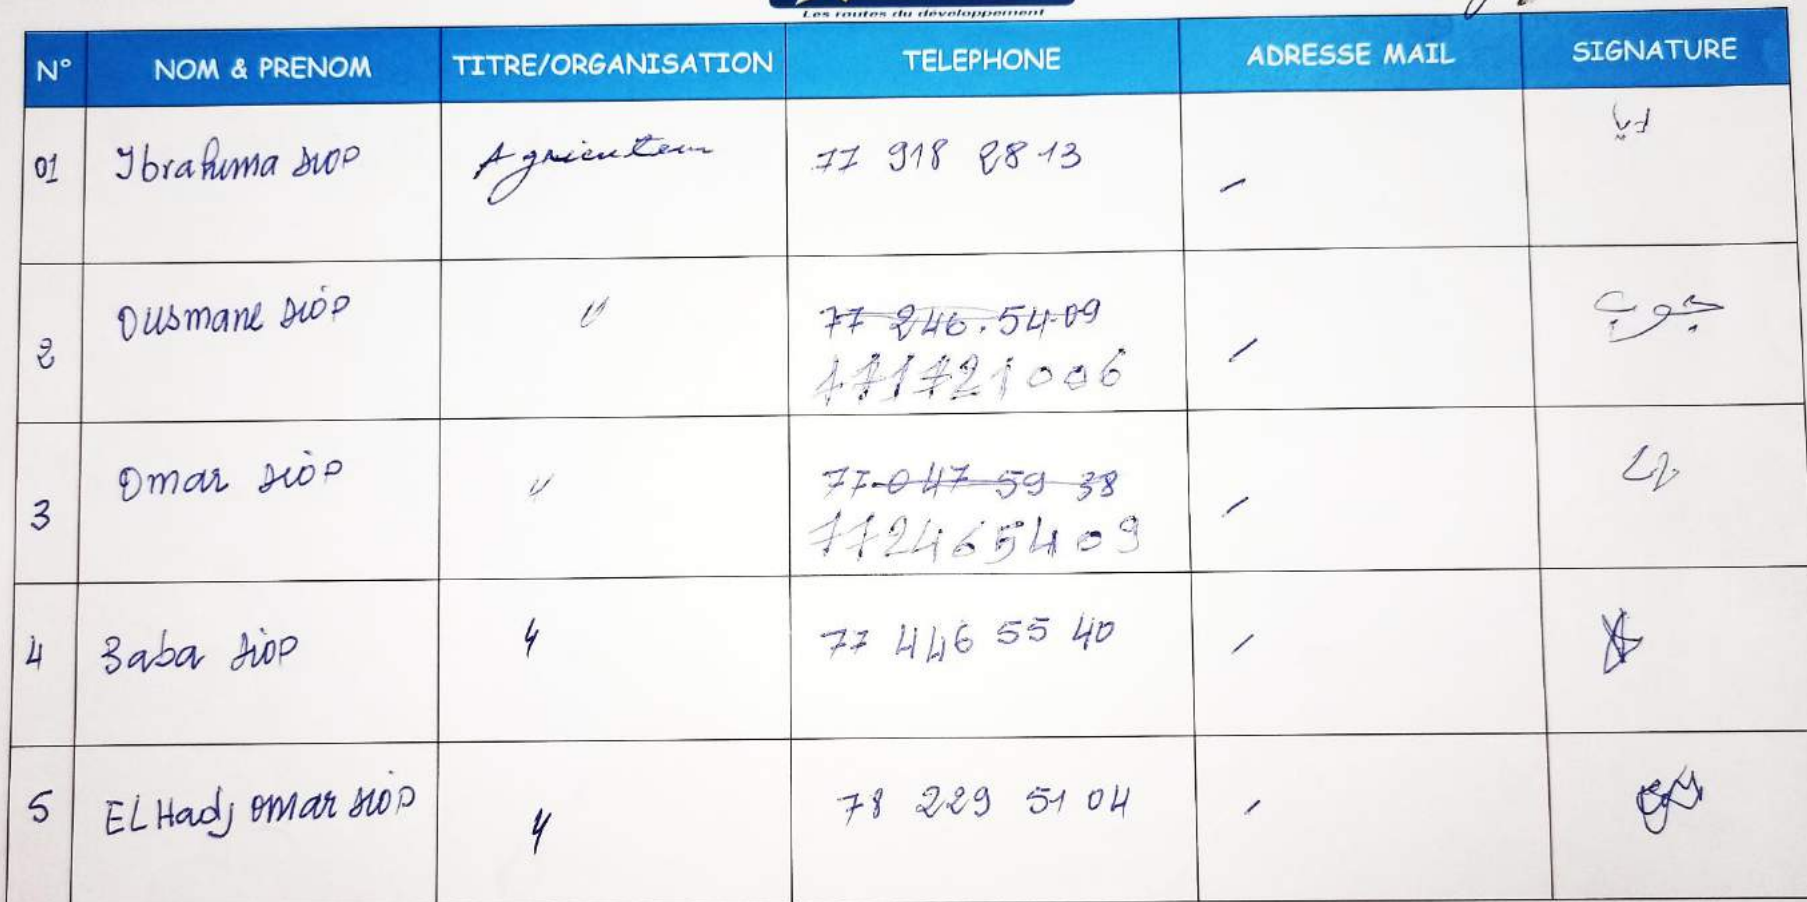 Les routes du développement
N° NOM & PRENOM TITRE/ORGANISATION TELEPHONE ADRESSE MAIL SIGNATURE
01 Ibrahima DIOP Agriculteur 77 918 28 13 /
2 Ousmane DIOP " 77 246.54.09 / جوب
771721006
3 Omar DIOP " 77.047 59 38 /
772465409
4 Baba DIOP " 77 446 55 40 /
5 EL Hadj omar DIOP " 78 229 51 04 /